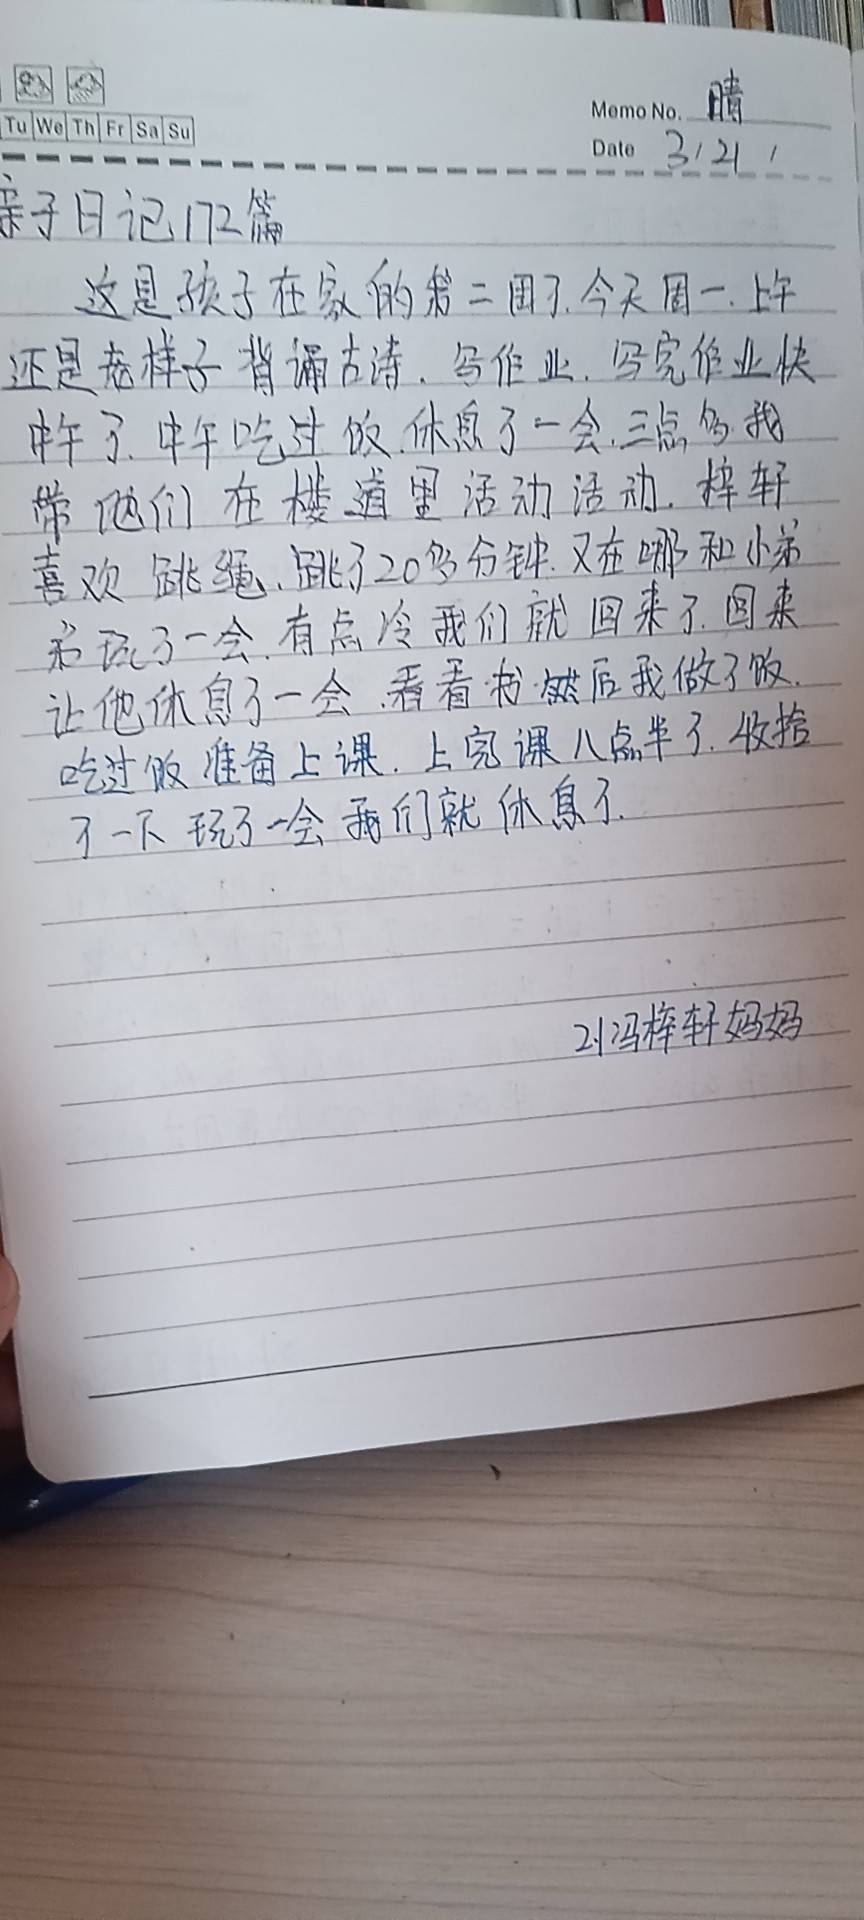 Memo No. 晴
Tu We Th Fr Sa Su
Date 3/21 /
亲子日记172篇
这是孩子在家的第二周了.今天周一.上午
还是老样子背诵古诗.写作业.写完作业快
中午了.中午吃过饭.休息了一会.三点多我
带他们在楼道里活动活动.梓轩
喜欢跳绳.跳了20多分钟.又在哪和小弟
弟玩了一会.有点冷我们就回来了.回来
让他休息了一会.看看书然后我做了饭.
吃过饭准备上课.上完课八点半了.收拾
了一下玩了一会我们就休息了.
21冯梓轩妈妈